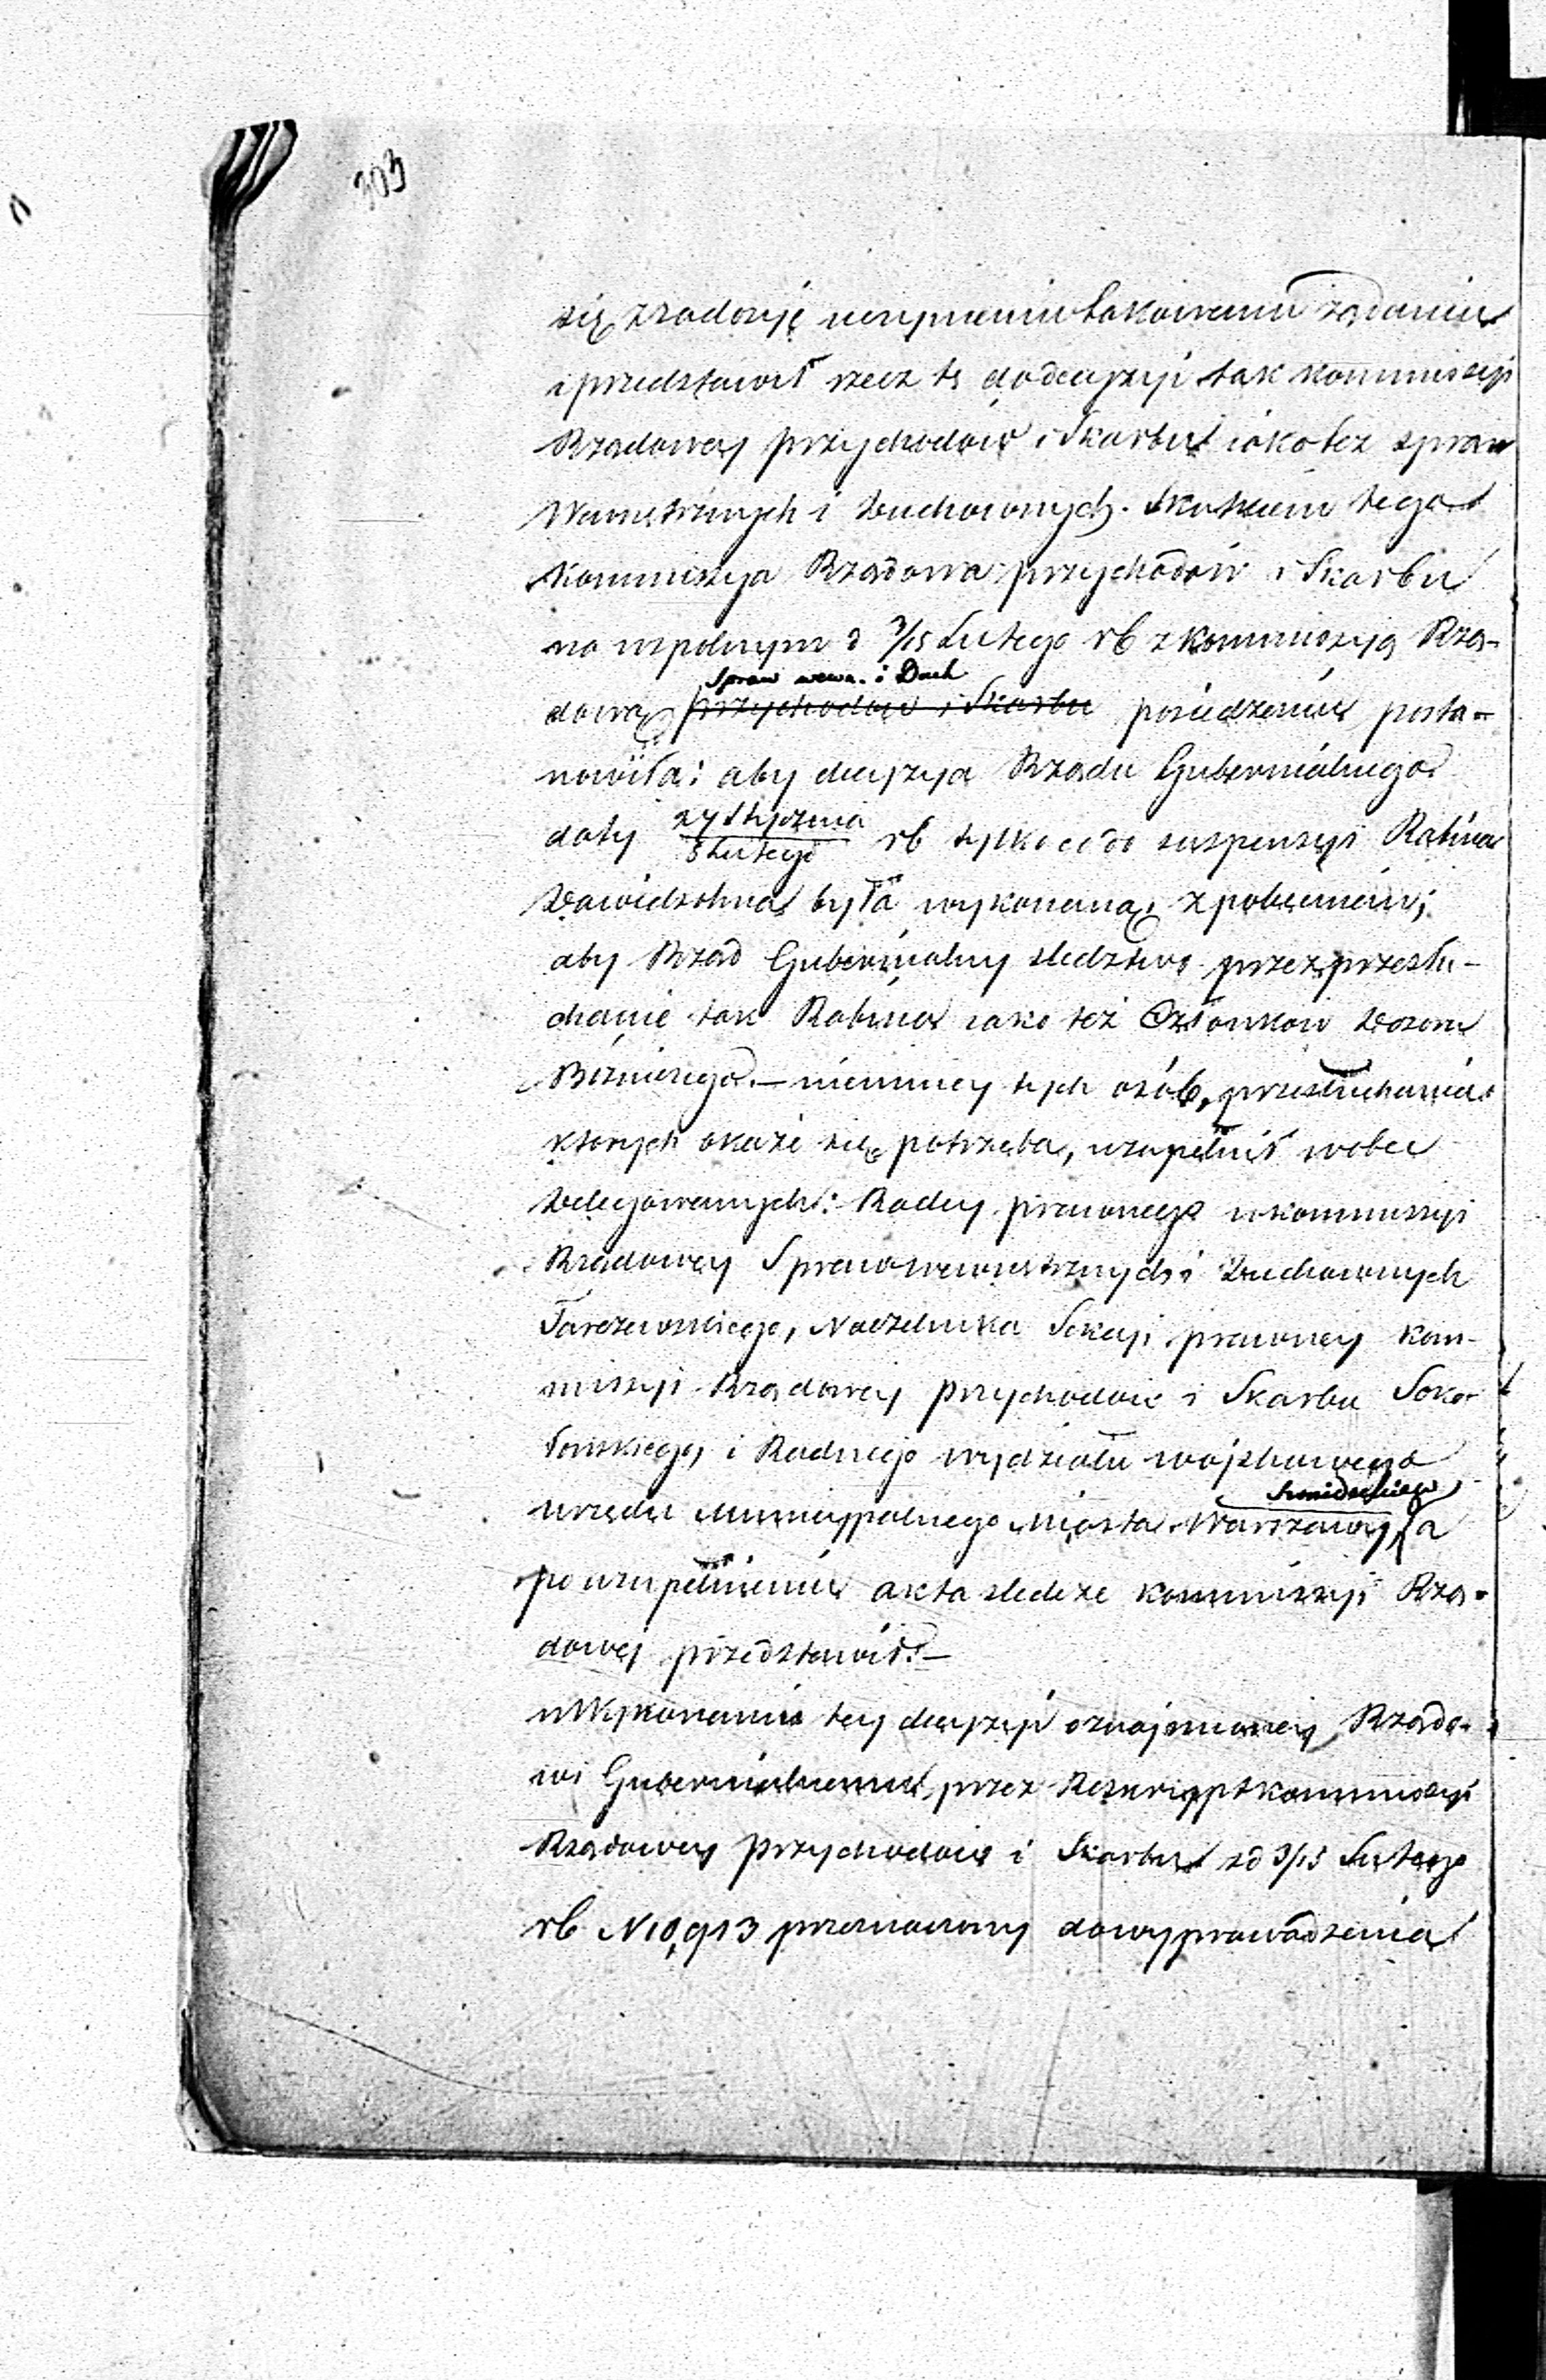 303
się zradość uczynieniu takowemu żądaniu
i przedstawił rzecz tę do decyzyi tak kommissyi
Rządowey przychodów i Skarbu iako też spraw
Wewnętrznych i Duchownych. Skutkiem tego
Kommissya Rządowa przychodów i Skarbu
na wspólnym d 3/15 Lutego rb z kommissyą Rzą-
Spraw wewn. i Duch
dową przychodów i Skarbu posiedzeniu posta-
nowiła: aby decyzya Rządu Gubernialnego
daty 27 Stycznia / 8 Lutego rb tylko co do suspensyi Rabina
Dawidsohna była wykonaną, z poleceniem;
aby Rząd Gubernialny śledztwo przez przesłu-
chanie tak Rabina iako też Członków Dozoru
Bóżniczego – niemniey tych osób, przesłuchania
których okaże się potrzeba, uzupełnił wobec
Delegowanych: Radcy prawnego w kommissyi
Rządowey Spraw wewnętrznych i Duchownych
Tarczewskiego, Naczelnika Sekcyi prawney kom-
missyi Rządowey przychodów i Skarbu Soko-
łowskiego, i Radnego wydziału wojskowego
urzędu Municypalnego Miasta Warszawy, a
po uzupełnieniu akta śledcze kommissyi Rzą-
dowéj przedstawił.–
W Wykonaniu tey decyzyi oznajmioney Rządo-
wi Gubernialnemu przez Reskrypt kommissyi
Rządowey przychodów i Skarbu z d 3/15 Lutego
rb N 10,913 przeznaczony do wyprowadzenia